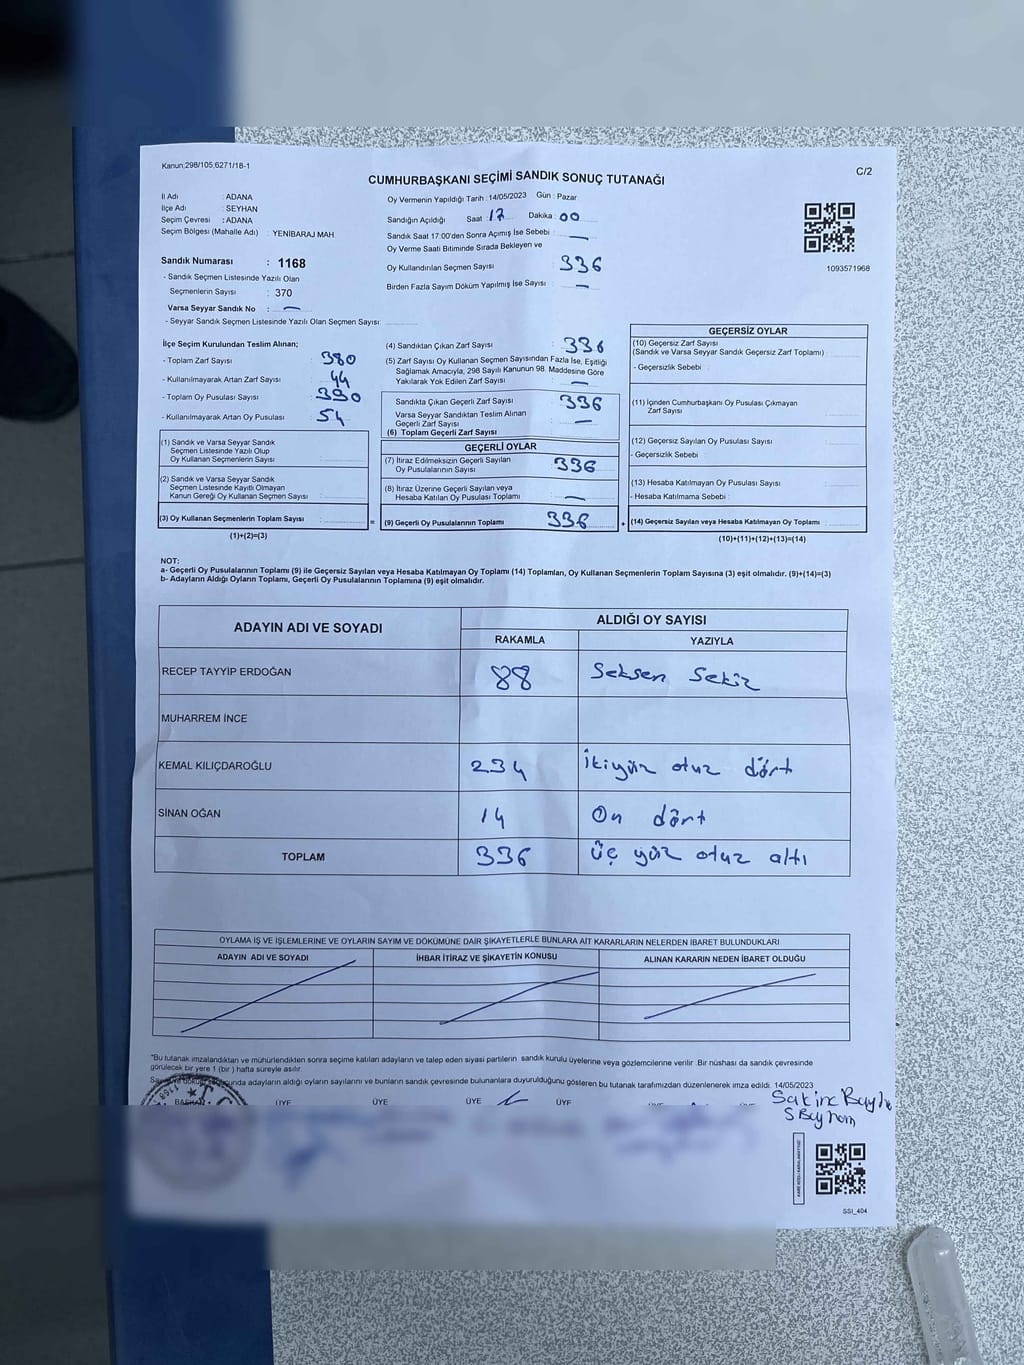 Kanun;298/105,6271/18-1
C/2
CUMHURBAŞKANI SEÇİMİ SANDIK SONUÇ TUTANAĞI
İl Adı : ADANA
İlçe Adı : SEYHAN
Seçim Çevresi : ADANA
Seçim Bölgesi (Mahalle Adı) : YENİBARAJ MAH.
Sandık Numarası : 1168
- Sandık Seçmen Listesinde Yazılı Olan
Seçmenlerin Sayısı : 370
Varsa Seyyar Sandık No : —
- Seyyar Sandık Seçmen Listesinde Yazılı Olan Seçmen Sayısı
Oy Vermenin Yapıldığı Tarih :14/05/2023 Gün : Pazar
Sandığın Açıldığı Saat : 17 Dakika : 00
Sandık Saat 17.00'den Sonra Açımış İse Sebebi : —
Oy Verme Saati Bitiminde Sırada Bekleyen ve
Oy Kullandırılan Seçmen Sayısı : 336
Birden Fazla Sayım Döküm Yapılmış İse Sayısı : —
1093571968
İlçe Seçim Kurulundan Teslim Alınan;
- Toplam Zarf Sayısı : 380
- Kullanılmayarak Artan Zarf Sayısı : 44
- Toplam Oy Pusulası Sayısı : 390
- Kullanılmayarak Artan Oy Pusulası : 54
(1) Sandık ve Varsa Seyyar Sandık
Seçmen Listesinde Yazılı Olup
Oy Kullanan Seçmenlerin Sayısı :
(2) Sandık ve Varsa Seyyar Sandık
Seçmen Listesinde Kayıtlı Olmayan
Kanun Gereği Oy Kullanan Seçmen Sayısı :
(3) Oy Kullanan Seçmenlerin Toplam Sayısı : =
(1)+(2)=(3)
(4) Sandıktan Çıkan Zarf Sayısı : 336
(5) Zarf Sayısı Oy Kullanan Seçmen Sayısından Fazla İse, Eşitliği
Sağlamak Amacıyla, 298 Sayılı Kanunun 98. Maddesine Göre
Yakılarak Yok Edilen Zarf Sayısı : —
Sandıkta Çıkan Geçerli Zarf Sayısı : 336
Varsa Seyyar Sandıktan Teslim Alınan
Geçerli Zarf Sayısı : —
(6) Toplam Geçerli Zarf Sayısı
GEÇERLİ OYLAR
(7) İtiraz Edilmeksizin Geçerli Sayılan
Oy Pusulalarının Sayısı : 336
(8) İtiraz Üzerine Geçerli Sayılan veya
Hesaba Katılan Oy Pusulası Toplamı : —
(9) Geçerli Oy Pusulalarının Toplamı 336 +
GEÇERSİZ OYLAR
(10) Geçersiz Zarf Sayısı
(Sandık ve Varsa Seyyar Sandık Geçersiz Zarf Toplamı) :
- Geçersizlik Sebebi :
(11) İçinden Cumhurbaşkanı Oy Pusulası Çıkmayan
Zarf Sayısı
(12) Geçersiz Sayılan Oy Pusulası Sayısı :
- Geçersizlik Sebebi :
(13) Hesaba Katılmayan Oy Pusulası Sayısı :
- Hesaba Katılmama Sebebi :
(14) Geçersiz Sayılan veya Hesaba Katılmayan Oy Toplamı :
(10)+(11)+(12)+(13)=(14)
NOT:
a- Geçerli Oy Pusulalarının Toplamı (9) ile Geçersiz Sayılan veya Hesaba Katılmayan Oy Toplamı (14) Toplamları, Oy Kullanan Seçmenlerin Toplam Sayısına (3) eşit olmalıdır. (9)+(14)=(3)
b- Adayların Aldığı Oyların Toplamı, Geçerli Oy Pusulalarının Toplamına (9) eşit olmalıdır.
ADAYIN ADI VE SOYADI ALDIĞI OY SAYISI
RAKAMLA YAZIYLA
RECEP TAYYİP ERDOĞAN 88 Seksen Sekiz
MUHARREM İNCE
KEMAL KILIÇDAROĞLU 234 İkiyüz otuz dört
SİNAN OĞAN 14 On dört
TOPLAM 336 üç yüz otuz altı
OYLAMA İŞ VE İŞLEMLERİNE VE OYLARIN SAYIM VE DÖKÜMÜNE DAİR ŞİKAYETLERLE BUNLARA AİT KARARLARIN NELERDEN İBARET BULUNDUKLARI
ADAYIN ADI VE SOYADI İHBAR İTİRAZ VE ŞİKAYETİN KONUSU ALINAN KARARIN NEDEN İBARET OLDUĞU
"Bu tutanak imzalandıktan ve mühürlendikten sonra seçime katılan adayların ve talep eden siyasi partilerin sandık kurulu üyelerine veya gözlemcilerine verilir .Bir nüshası da sandık çevresinde
görülecek bir yere 1 (bir ) hafta süreyle asılır.
adayların aldığı oyların sayılarını ve bunların sandık çevresinde bulunanlara duyurulduğunu gösteren bu tutanak tarafımızdan düzenlenerek imza edildi. 14/05/2023
BAŞKAN ÜYE ÜYE ÜYE ÜYE
SSI_404